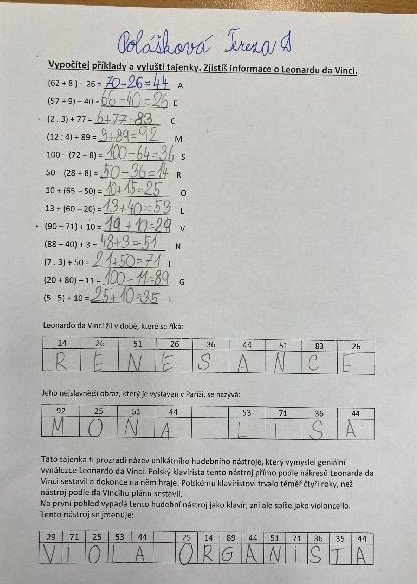 Polášková Tereza
Vypočítej příklady a vylušti tajenky. Zjistíš informace o Leonardu da Vinci.
(62 + 8) - 26 = 70-26=44 A
(57 + 9) - 40 = 66-40=26 E
(2 . 3) + 77 = 6+77=83 C
(12 : 4) + 89 = 3+89=92 M
100 - (72 - 8) = 100-64=36 S
50 - (28 + 8) = 50-36=14 R
10 + (65 - 50) = 10+15=25 O
13 + (60 - 20) = 13+40=53 L
(90 - 71) + 10 = 19+10=29 V
(88 - 40) + 3 = 48+3=51 N
(7 . 3) + 50 = 21+50=71 I
(20 + 80) - 11 = 100-11=89 G
(5 . 5) + 10 = 25+10=35
Leonardo da Vinci žil v době, které se říká:
14 26 51 26 36 44 51 83 26
R E N E S A N C E
Jeho nejslavnější obraz, který je vystaven v Paříži, se nazývá:
92 25 51 44 53 71 36 44
M O N A L I S A
Tato tajenka ti prozradí název unikátního hudebního nástroje, který vymyslel geniální
vynálezce Leonardo da Vinci. Polský klavírista tento nástroj přímo podle nákresů Leonarda da
Vinci sestavil a dokonce na něm hraje. Polskému klavíristovi trvalo téměř čtyři roky, než
nástroj podle da Vinciho plánu sestavil.
Na první pohled vypadá tento hudební nástroj jako klavír, zní ale spíše jako violoncello.
Tento nástroj se jmenuje:
29 71 25 53 44 25 14 89 44 51 71 36 35 44
V I O L A O R G A N I S T A